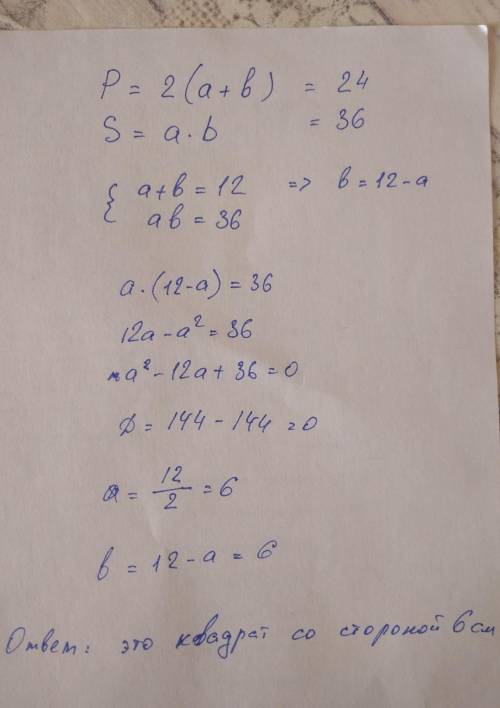 P = 2(a+b) = 24
S = a·b = 36
{ a+b = 12 => b = 12-a
ab = 36
a·(12-a) = 36
12a - a² = 36
a² - 12a + 36 = 0
D = 144 - 144 = 0
a = 12/2 = 6
b = 12 - a = 6
Ответ: это квадрат со стороной 6 см